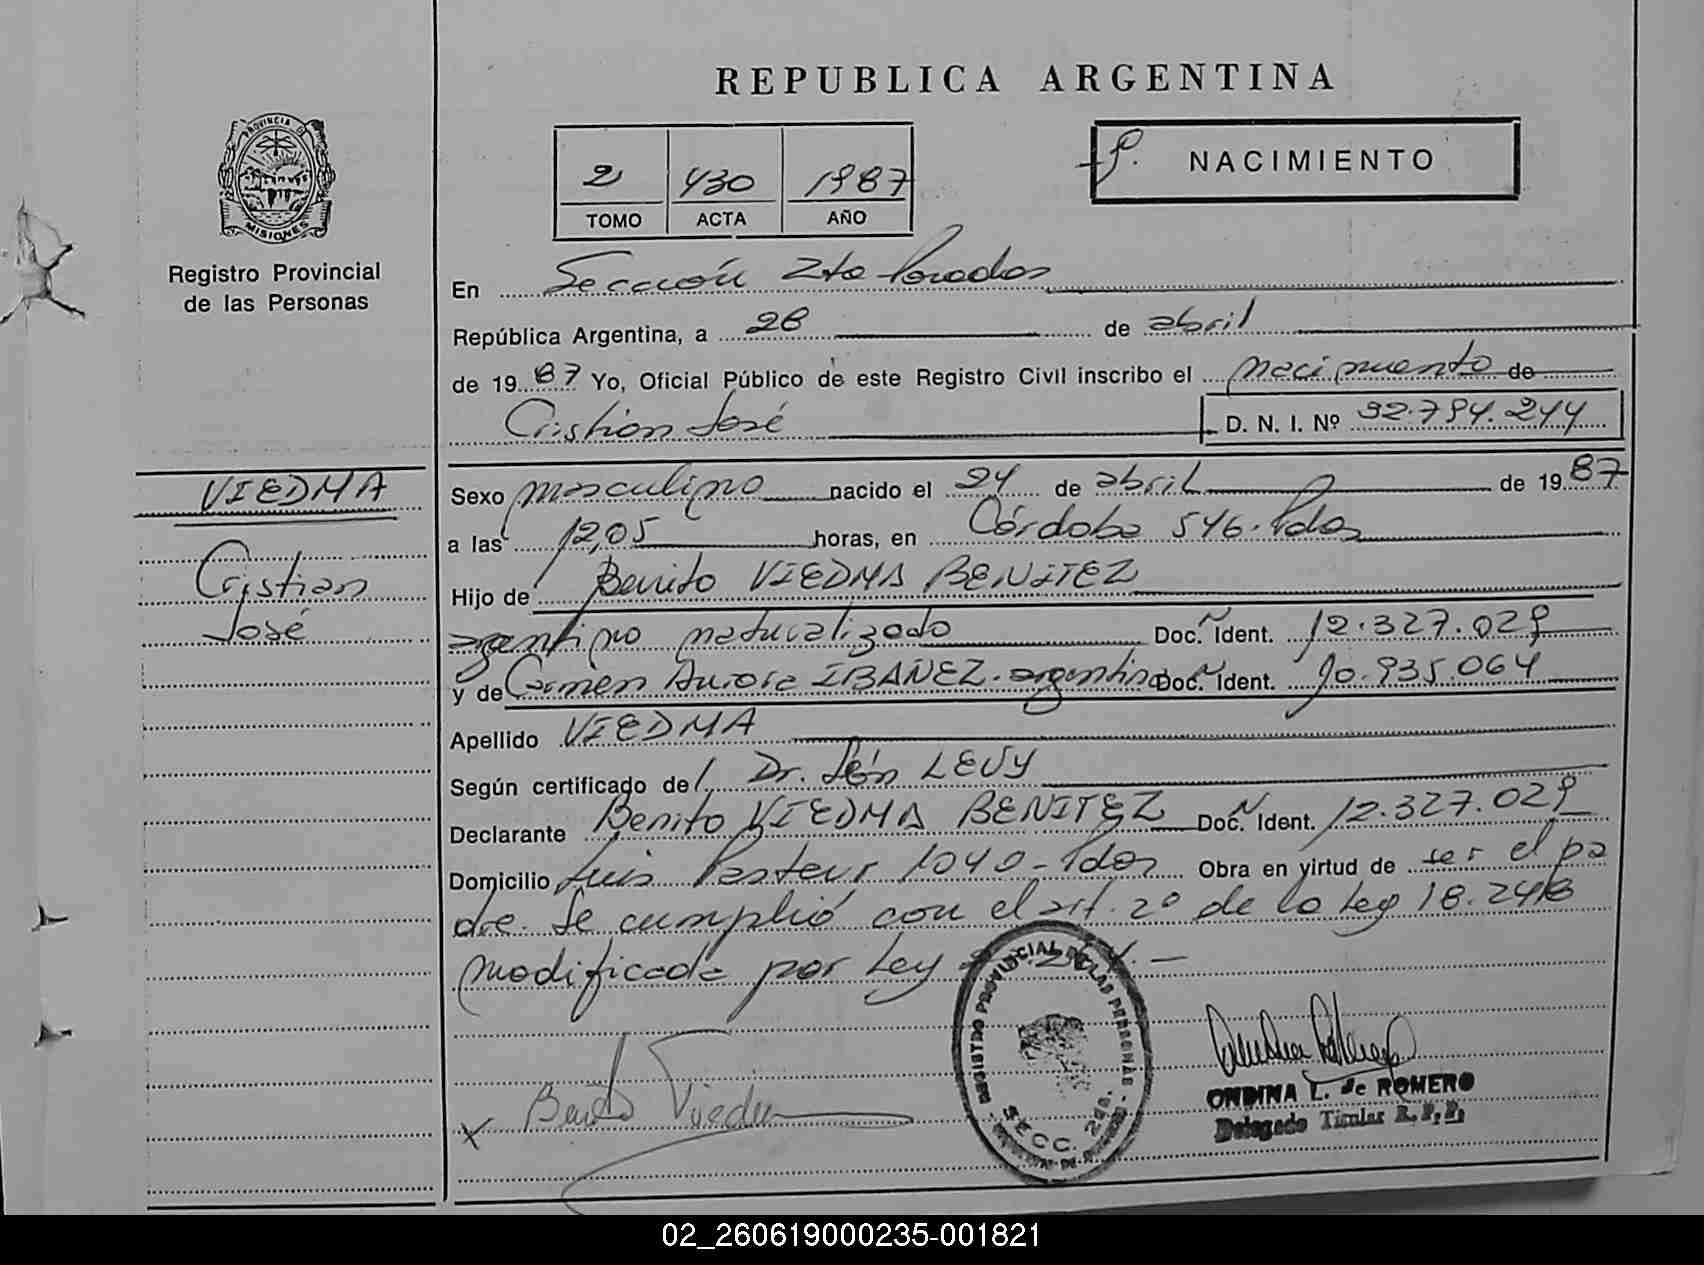 REPUBLICA ARGENTINA
PROVINCIA D
MISIONES
Registro Provincial
de las Personas
2 430 1987
TOMO ACTA AÑO
NACIMIENTO
En Sección 2da Posadas
República Argentina, a 28 de abril
de 1987 Yo, Oficial Público de este Registro Civil inscribo el nacimiento de
Cristian José D. N. I. Nº 32.794.244
VIEDMA
Cristian
José
Sexo masculino nacido el 24 de abril de 1987
a las 12,05 horas, en Córdoba 546. Pdas
Hijo de Benito VIEDMA BENITEZ
argentino naturalizado Doc. Ident. 12.327.029
y de Carmen Aurora IBAÑEZ. argentina Doc. Ident. 10.935.064
Apellido VIEDMA
Según certificado del Dr. León LEVY
Declarante Benito VIEDMA BENITEZ Doc. Ident. 12.327.029
Domicilio Luis Pasteur 1040 - Pdas Obra en virtud de ser el pa
dre. Se cumplió con el art. 2º de la Ley 18.248
modificada por Ley
REGISTRO PROVINCIAL DE LAS PERSONAS
SECC. 2da.
x Benito Viedma
ONDINA L. de ROMERO
Delegado Titular R.P.P.
02_260619000235-001821